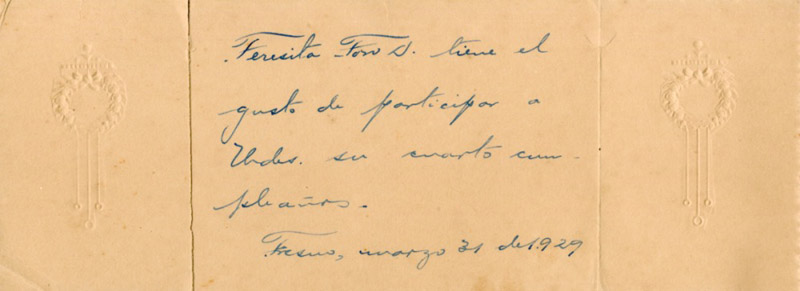 Teresita Toro D. tiene el
gusto de participar a
Udes. su cuarto cum-
pleaños.
Fresno, marzo 31 de 1.929